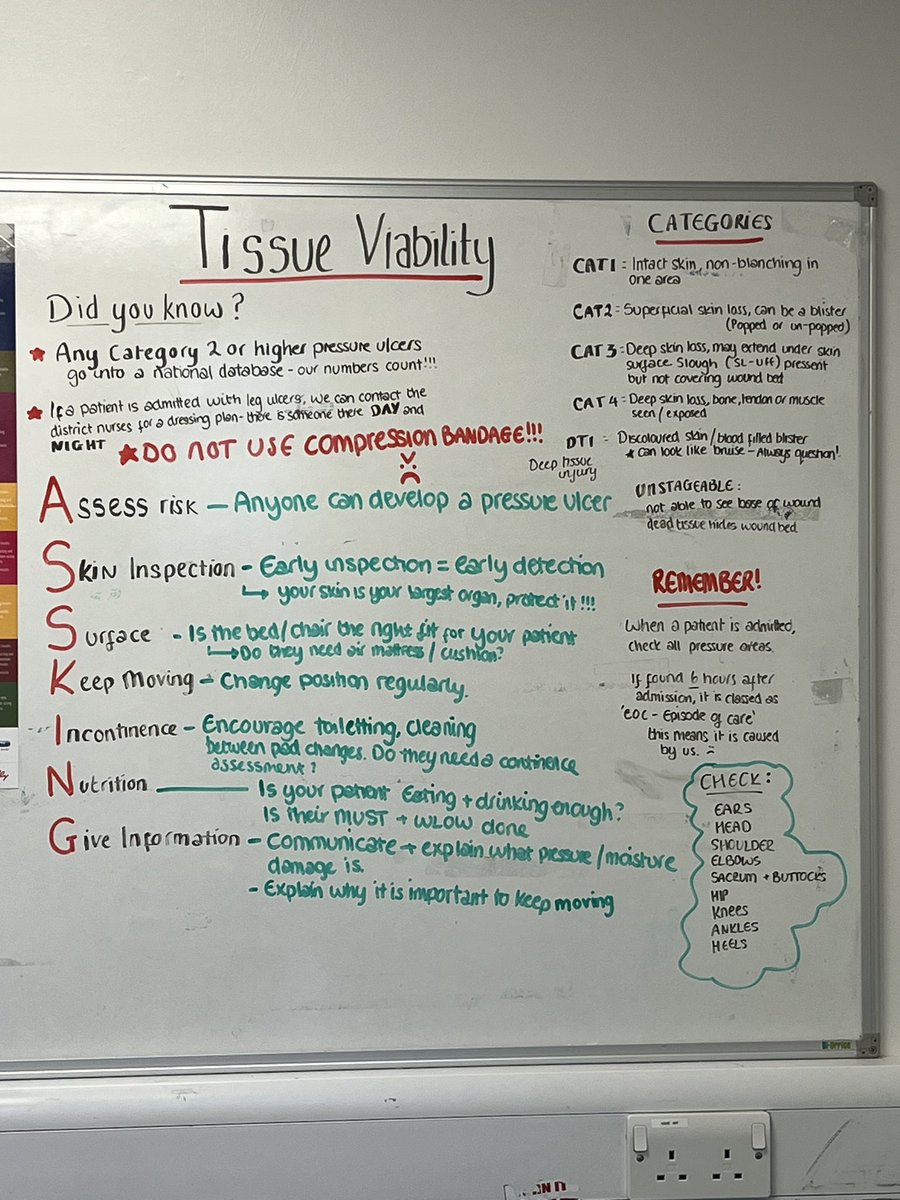 Tissue Viability
Did you know?
★ Any Category 2 or higher pressure ulcers
go into a national database - our numbers count!!!
★ If a patient is admitted with leg ulcers, we can contact the
district nurses for a dressing plan - there is someone there DAY and
NIGHT ★ DO NOT USE COMPRESSION BANDAGE!!!
Assess risk – Anyone can develop a pressure ulcer
Skin Inspection - Early inspection = early detection
↳ your skin is your largest organ, protect it!!!
Surface - Is the bed/chair the right fit for your patient
↳ Do they need air mattress / cushion?
Keep Moving - Change position regularly.
Incontinence – Encourage toiletting, cleaning
between pad changes. Do they need a continence
assessment?
Nutrition — Is your patient Eating + drinking enough?
Is their MUST + WLOW done
Give Information – Communicate + explain what pressure/moisture
damage is.
- Explain why it is important to keep moving
CATEGORIES
CAT1 : Intact skin, non-blanching in
one area
CAT2 : Superficial skin loss, can be a blister
(Popped or un-popped)
CAT 3 : Deep skin loss, may extend under skin
surface Slough ('SL-Uff) pressent
but not covering wound bed
CAT 4 : Deep skin loss, bone, tendon or muscle
seen / exposed
DTI : Discoloured skin / blood filled blister
Deep tissue
injury
★ can look like bruise - Always question!
UNSTAGEABLE :
not able to see base of wound
dead tissue hides wound bed
REMEMBER!
When a patient is admitted,
check all pressure areas.
If found 6 hours after
admission, it is classed as
'EOC - Episode of care'
this means it is caused
by us.
CHECK :
EARS
HEAD
SHOULDER
ELBOWS
SACRUM + BUTTOCKS
HIP
Knees
ANKLES
HEELS
Bi-OFFICE